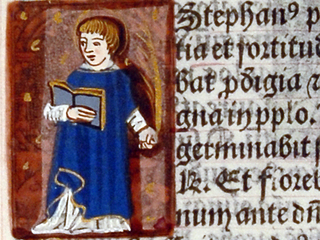 Stephanꝰ p
tia et fortitud
bat ꝓdigia ⁊
gna in pplo.
germinabit
R. Et floreb
num ante dñ